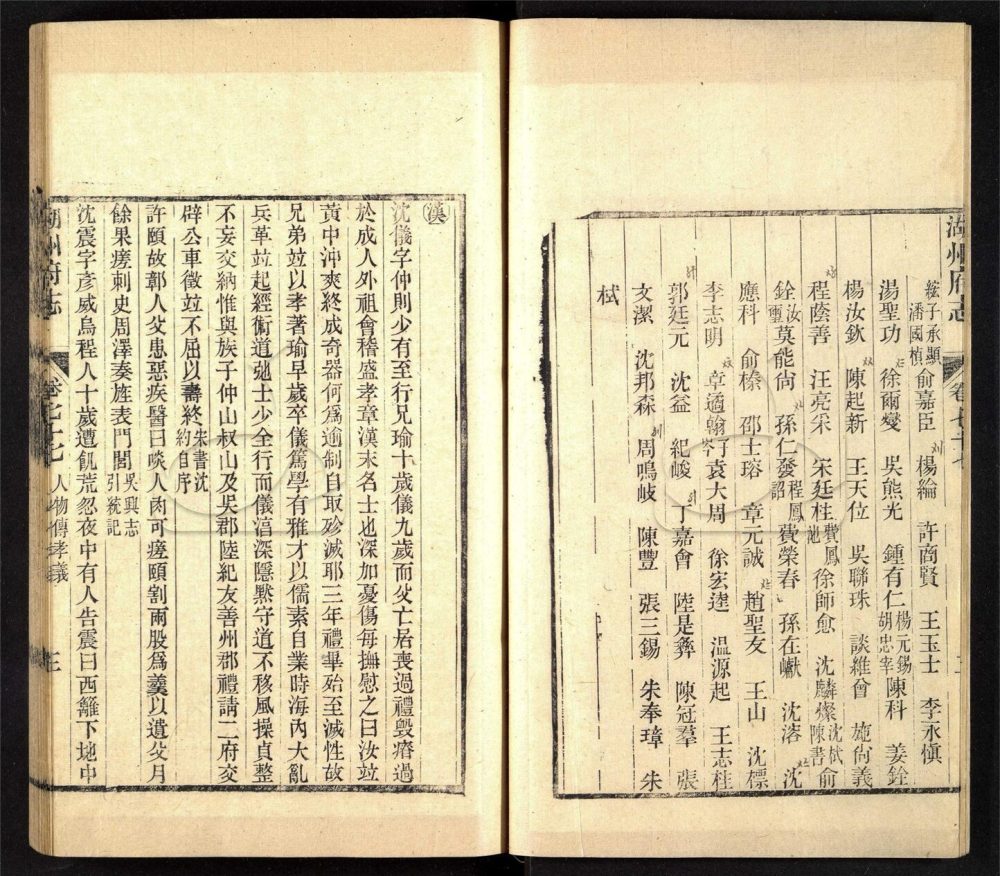 湖州府志 卷七十七
鋐子承顯 潘國楨 俞嘉臣 楊綸 許商賢 王玉士 李永愼
湯聖功 徐爾燮 吳熊光 鍾有仁 楊元錫 胡忠宰 陳科 姜銓
楊汝欽 陳起新 王天位 吳聯珠 談維曾 施尙義
程蔭善 汪亮采 宋廷桂 費鳳 徐師愈 沈麟燦 沈栻 陳書 俞
銓 汝璽 莫能尙 孫仁發 程鳳詔 費榮春 孫在巘 沈濬 沈
應科 俞榛 邵士瑢 章元誠 趙聖友 王山 沈標
李志明 章適翰 袁大周 徐宏逵 温源起 王志桂
郭廷元 沈益 紀峻 丁嘉會 陸是彝 陳冠羣 張
文潔 沈邦森 周鳴岐 陳豐 張三錫 朱奉璋 朱
栻
漢
沈儀字仲則少有至行兄瑜十歲儀九歲而父亡居喪過禮毁瘠過
於成人外祖會稽盛孝章漢末名士也深加憂傷每撫慰之曰汝竝
黃中沖爽終成奇器何爲逾制自取殄滅耶三年禮畢殆至滅性故
兄弟竝以孝著瑜早歲卒儀篤學有雅才以儒素自業時海內大亂
兵革竝起經術道弛士少全行而儀湻深隱默守道不移風操貞整
不妄交納惟與族子仲山叔山及吳郡陸紀友善州郡禮請二府交
辟公車徵竝不屈以壽終 朱書沈約自序
許頤故鄣人父患惡疾醫曰啖人肉可瘥頤割兩股爲羹以遺父月
餘果瘥刺史周澤奏旌表門閭 吳興志引統記
沈震字彥威烏程人十歲遭飢荒忽夜中有人告震曰西籬下地中
湖州府志 卷七十七 人物傳孝義 三